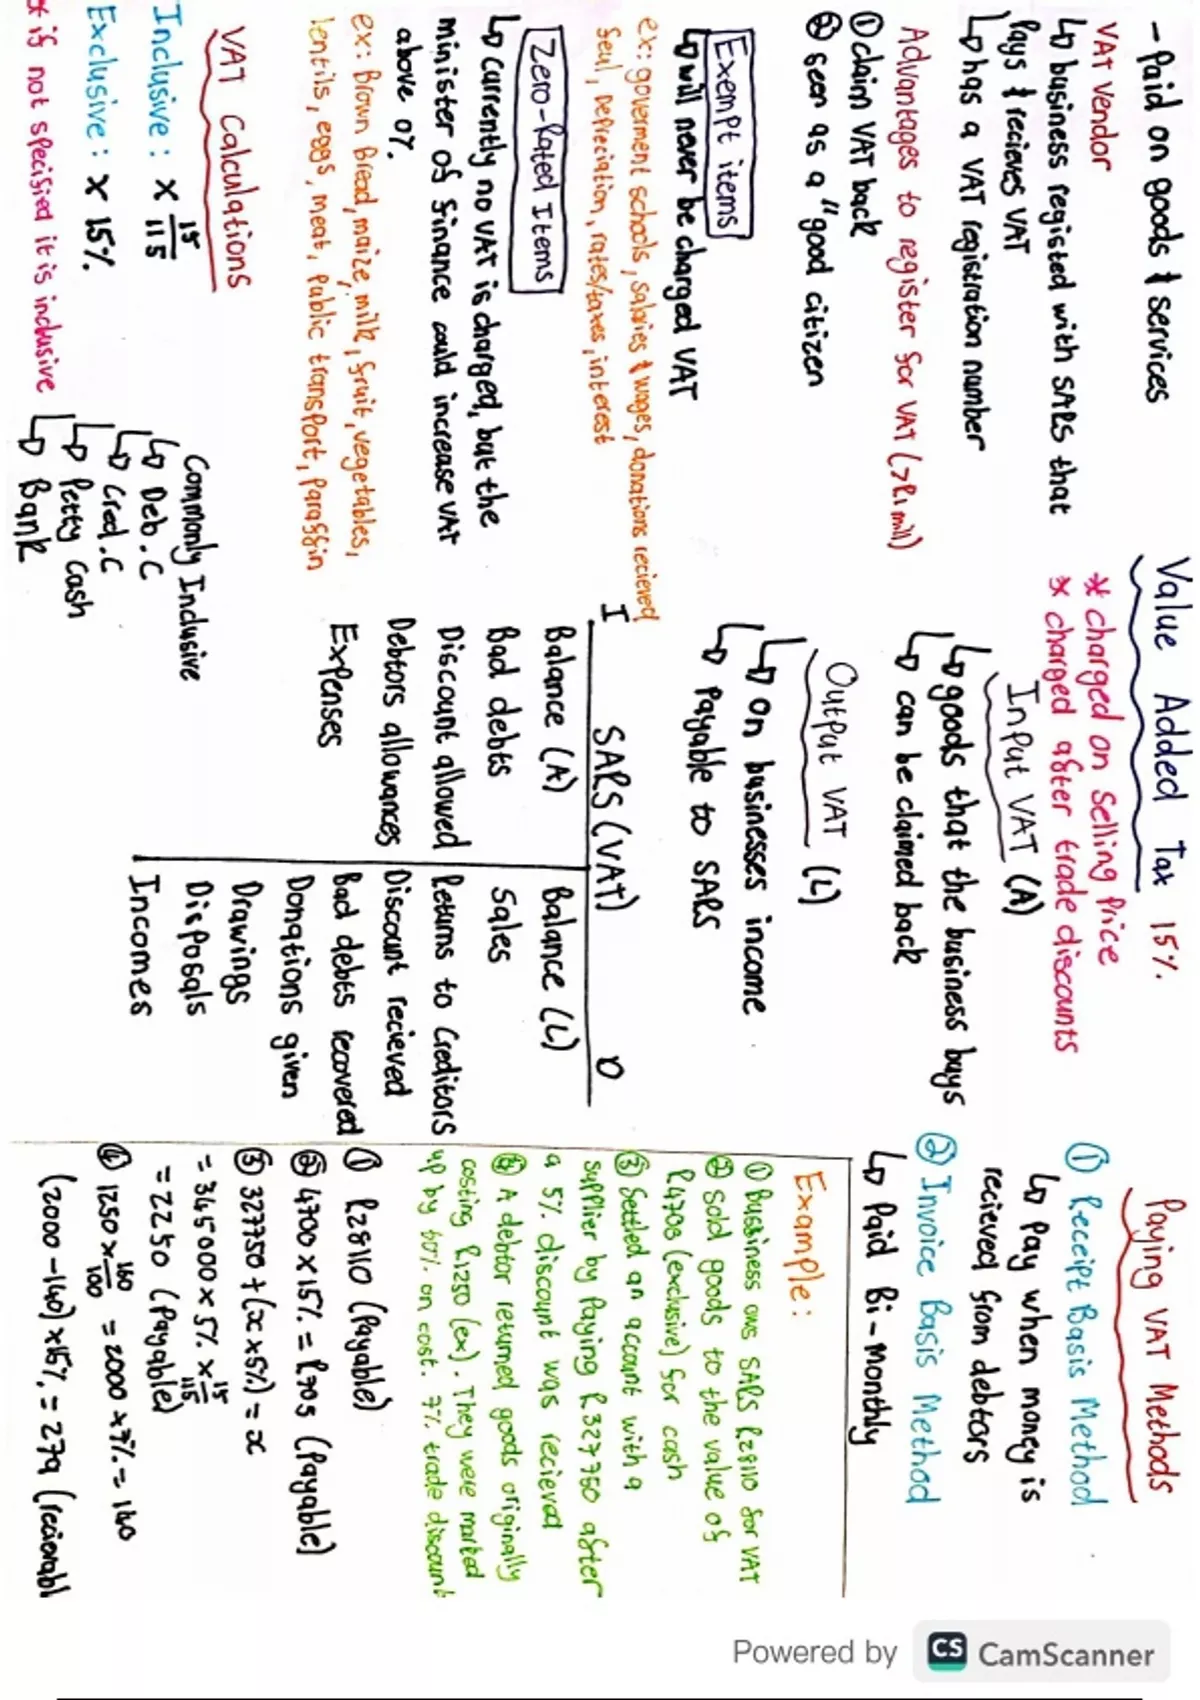 Value Added Tax 15%
- Paid on goods & services
* charged on selling price
* charged after trade discounts
VAT Vendor
↳ business registed with SARS that
Pays & recieves VAT
↳ has a VAT registration number
Advantages to register for VAT (>R1 mill)
① claim VAT back
② seen as a "good citizen
Exempt items
↳ will never be charged VAT
ex: goverment schools, salaries & wages, donations recieved
fuel, Depreciation, rates/taxes, interest
Zero-Rated Items
↳ currently no VAT is charged, but the
minister of finance could increase VAT
above 0%.
ex: Brown Bread, maize, milk, fruit, vegetables,
lentils, eggs, meat, Public transport, Paraffin
VAT Calculations
Inclusive : x 15/115
Exclusive : x 15%
* if not specified it is inclusive
Commonly Inclusive
↳ Deb.C
↳ Cred.C
↳ Petty Cash
↳ Bank
Input VAT (A)
↳ goods that the business buys
↳ can be claimed back
Output VAT (L)
↳ On businesses income
↳ Payable to SARS
I SARS (VAT) O
Balance (A) Balance (L)
Bad debts Sales
Discount allowed Returns to Creditors
Debtors allowances Discount recieved
Expenses Bad debts recovered
Donations given
Drawings
Disposals
Incomes
Paying VAT Methods
① Receipt Basis Method
↳ Pay when money is
recieved from debtors
② Invoice Basis Method
↳ Paid Bi-monthly
Example:
① Bussiness ows SARS R28110 for VAT
② Sold goods to the value of
R4703 (exclusive) for cash
③ Settled an account with a
supplier by Paying R327750 after
a 5% discount was recieved
④ A debtor returned goods originally
costing R1250 (ex). They were marked
up by 60% on cost. 7% trade discount
① R28110 (Payable)
② 4700 x 15% = R705 (Payable)
③ 327750 + (x x 5%) = x
= 345000 x 5% x 15/115
= 2250 (Payable)
④ 1250 x 160/100 = 2000 x 7% = 140
(2000 - 140) x 15% = 279 (recievabl
Powered by CS CamScanner